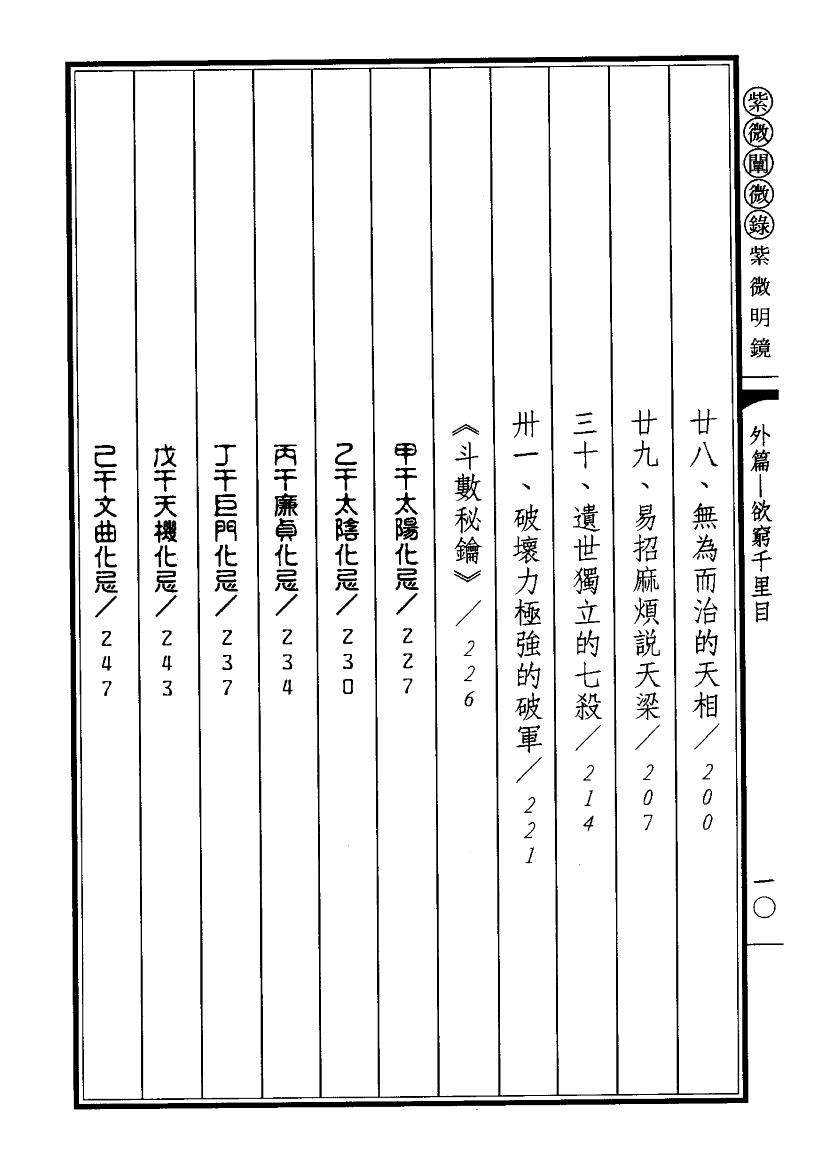 紫微闡微錄紫微明鏡
外篇—欲窮千里目
一〇
廿八、無為而治的天相／200
廿九、易招麻煩說天梁／207
三十、遺世獨立的七殺／214
卅一、破壞力極強的破軍／221
《斗數秘鑰》／226
甲干太陽化忌／227
乙干太陰化忌／230
丙干廉貞化忌／234
丁干巨門化忌／237
戊干天機化忌／243
己干文曲化忌／247